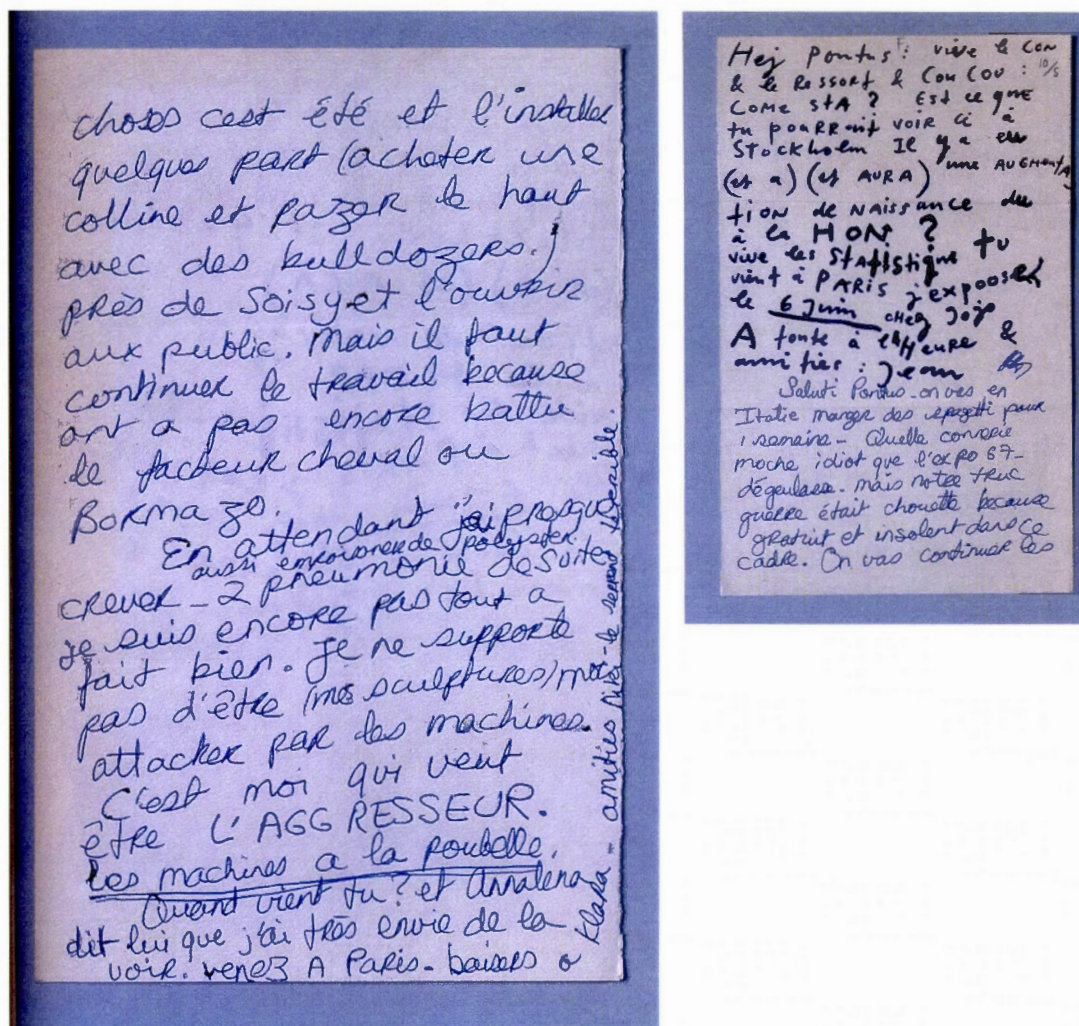 choses cest été et l'installer
quelques part (acheter une
colline et RAZER le haut
avec des bulldozers.)
près de Soisy et l'ouvrir
aux public. Mais il faut
continuer le travail because
ont a pas encore battu
le facteur cheval ou
BORMAZO.
En attendant j'ai presque
aussi empoisoner de polyester.
CREVER _ 2 pneumonie de suite
je suis encore pas tout a
fait bien. Je ne supporte
pas d'être (mes sculptures) moi
attacker par les machines.
C'est moi qui veut
être L'AGGRESSEUR.
Les machines a la poubelle.
Quant vient tu? et Annalena
dit lui que j'ai très envie de la
voir. venez A Paris - baisers a
Klara - amities Niki - le serpent terrible.
Hej Pontus: vive le CON
10/5
& le Ressort & Cou Cou :
COME STA ? Est ce que
tu pourrait voir ci à
STOCKholm Il y a eu
(et a) (et AURA) une AUGMENTA
tion de NAissance du
à la HON ?
vive les StAtistique tu
vient à PARis j'exposes
le 6 Juin chez Jojo
A toute à l'Heure &
amitiés : Jean
Saluti Pontus - on vas en
Italie manger des spagetti pour
1 semaine - Quelle connerie
moche idiot que l'expo 67 -
dégeulasse. mais notre truc
guerre était chouette because
gratuit et insolent dans ce
cadre. On vas continuer les